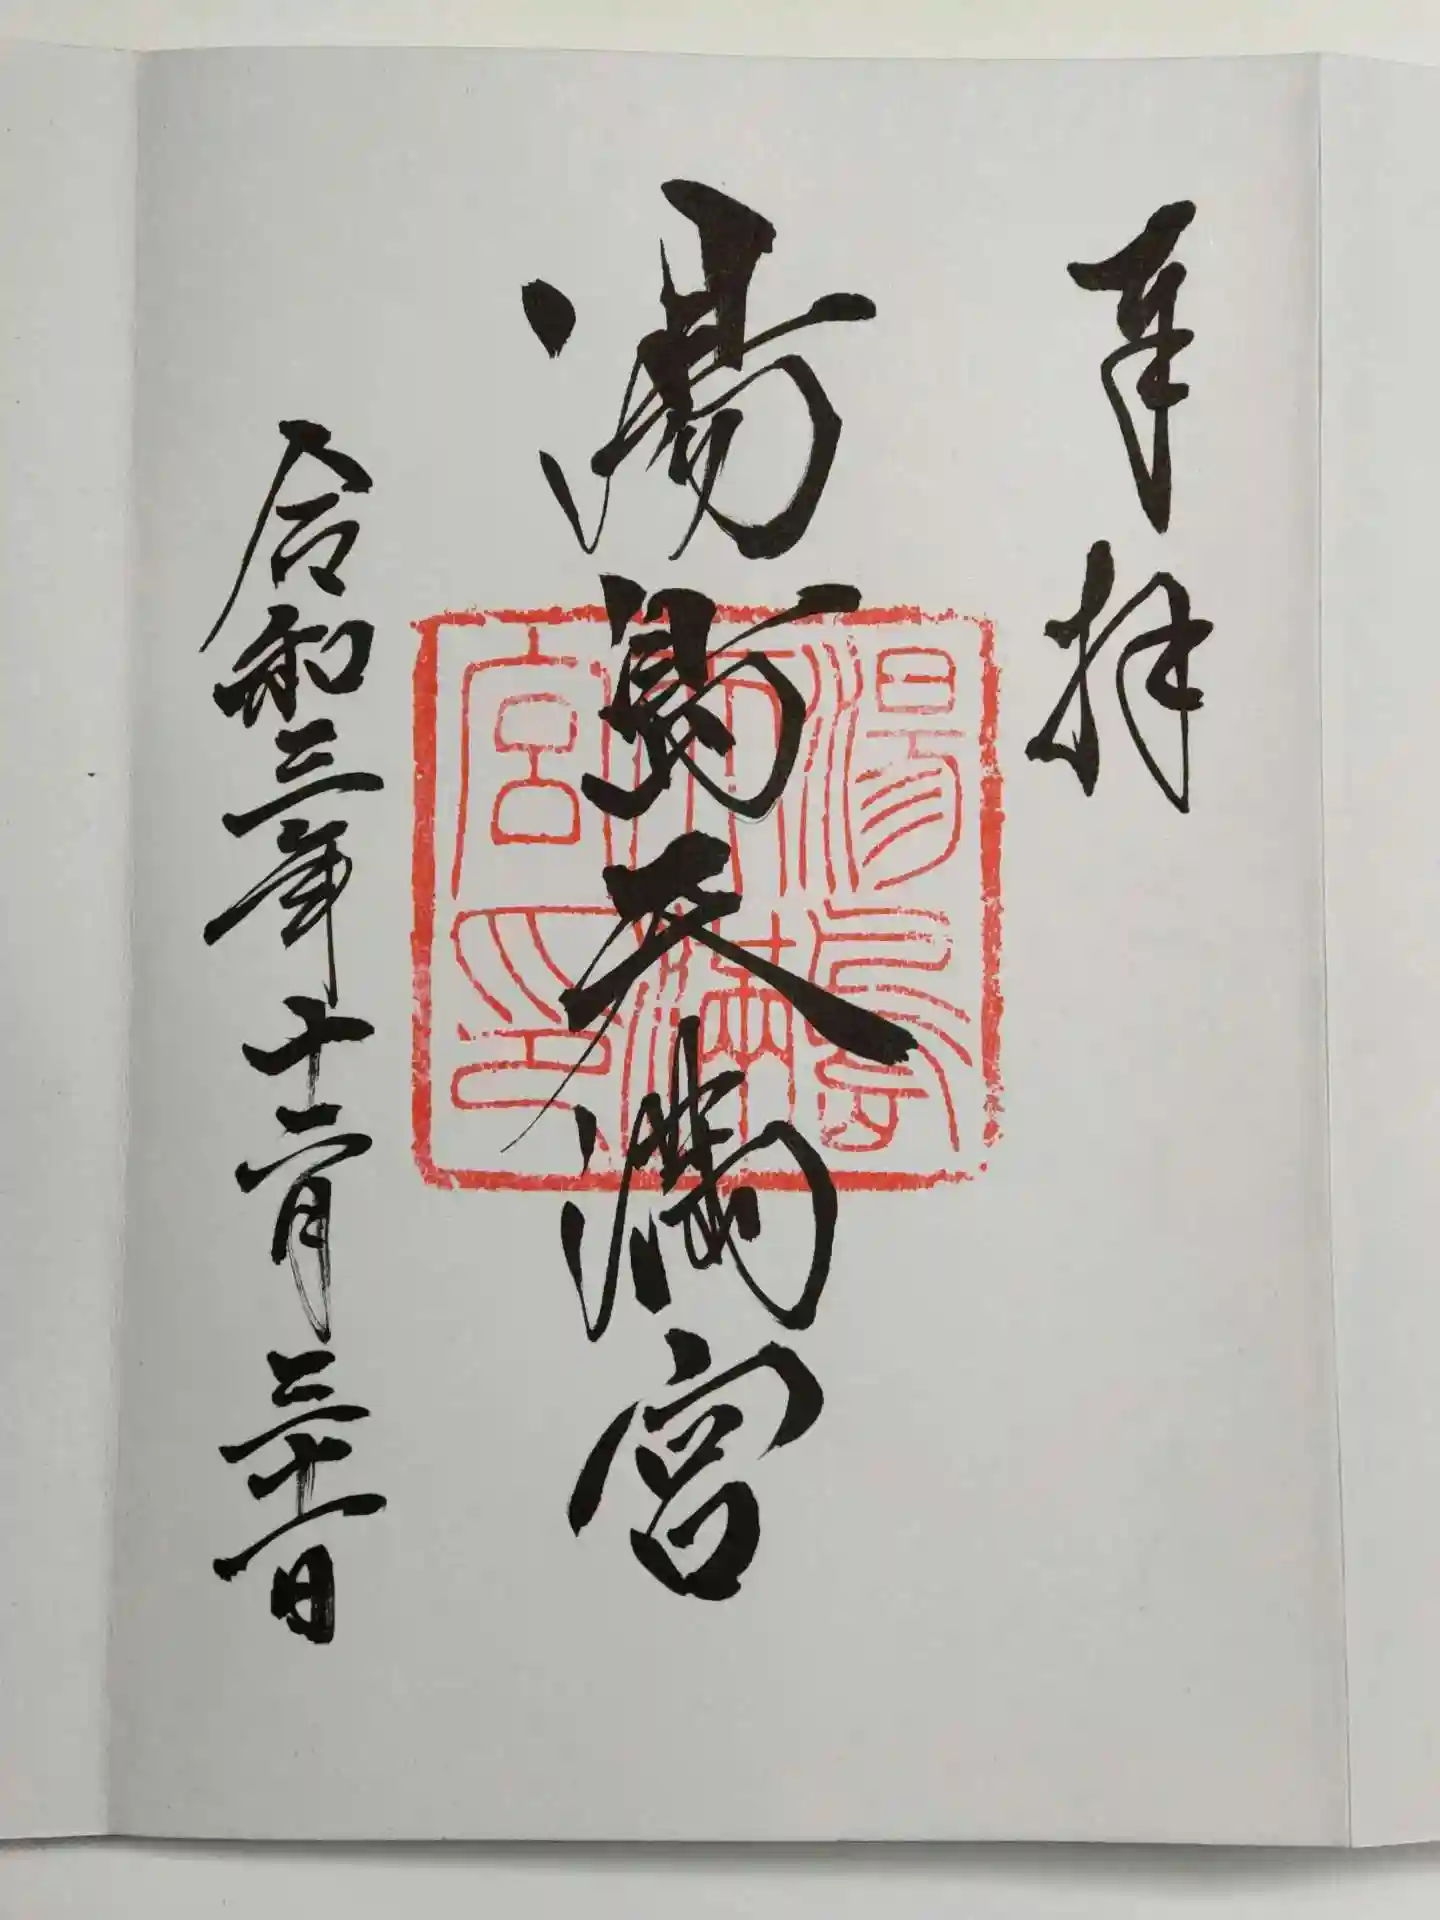 奉拝
湯島天満宮
令和三年十二月三十一日
湯島
天満
宮印